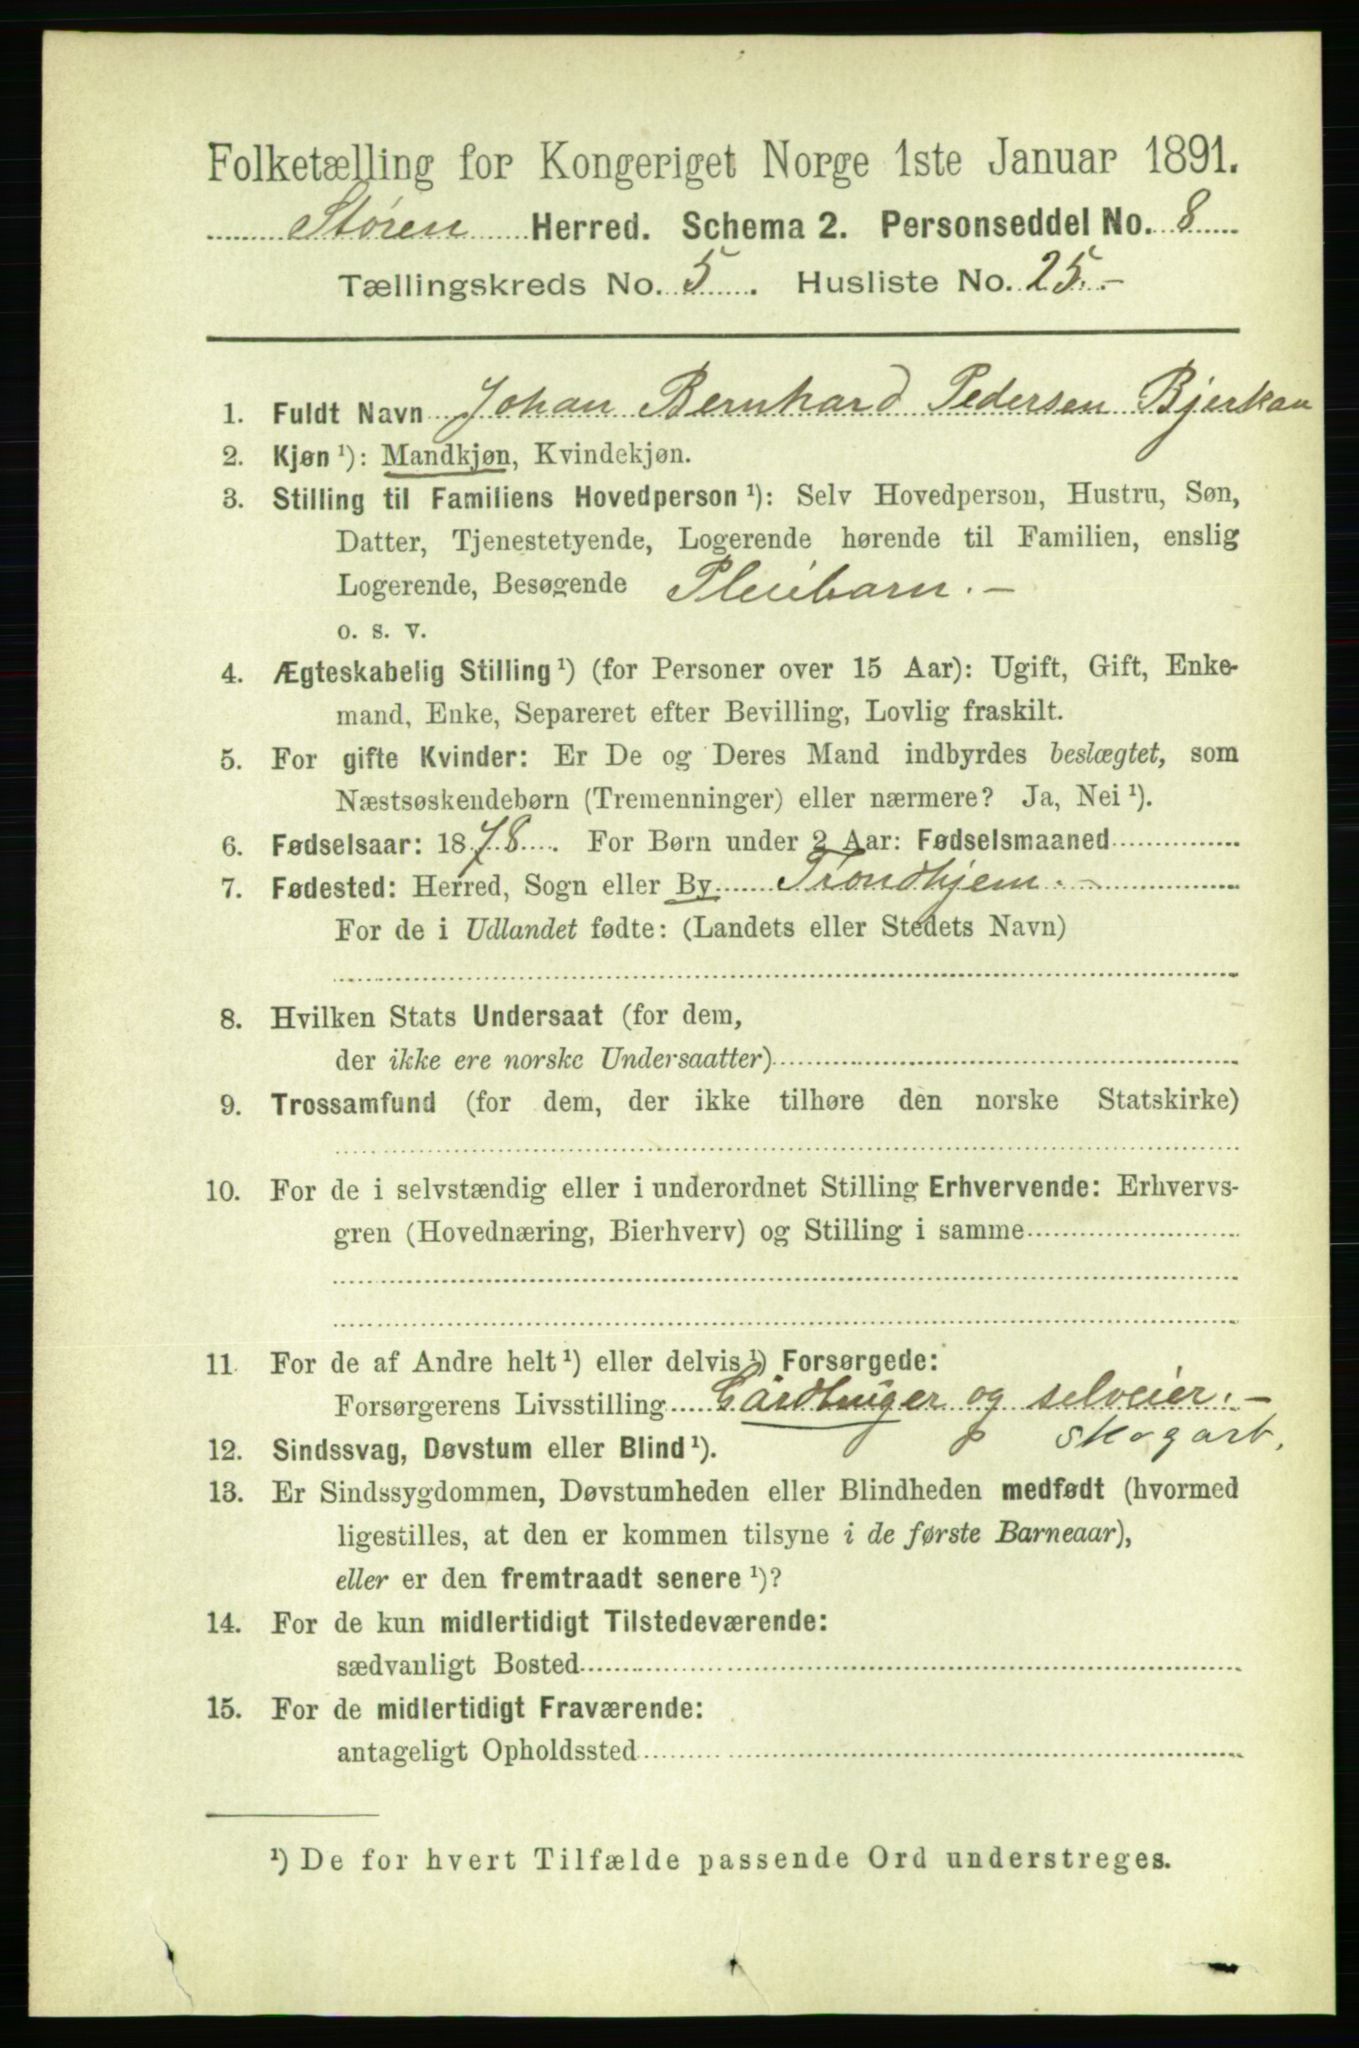 Folketælling for Kongeriget Norge 1ste Januar 1891.
Støren Herred. Schema 2. Personseddel No. 8
Tællingskreds No. 5. Husliste No. 25.-
1. Fuldt Navn Johan Bernhard Pedersen Bjerkan
2. Kjøn ¹): Mandkjøn, Kvindekjøn.
3. Stilling til Familiens Hovedperson ¹): Selv Hovedperson, Hustru, Søn,
Datter, Tjenestetyende, Logerende hørende til Familien, enslig
Logerende, Besøgende Pleiebarn. –
o. s. v.
4. Ægteskabelig Stilling ¹) (for Personer over 15 Aar): Ugift, Gift, Enke-
mand, Enke, Separeret efter Bevilling, Lovlig fraskilt.
5. For gifte Kvinder: Er De og Deres Mand indbyrdes beslægtet, som
Næstsøskendebørn (Tremenninger) eller nærmere? Ja, Nei ¹).
6. Fødselsaar: 1878. For Børn under 2 Aar: Fødselsmaaned
7. Fødested: Herred, Sogn eller By Trondhjem. –
For de i Udlandet fødte: (Landets eller Stedets Navn)
8. Hvilken Stats Undersaat (for dem,
der ikke ere norske Undersaatter)
9. Trossamfund (for dem, der ikke tilhøre den norske Statskirke)
10. For de i selvstændig eller i underordnet Stilling Erhvervende: Erhvervs-
gren (Hovednæring, Bierhverv) og Stilling i samme
11. For de af Andre helt ¹) eller delvis ¹) Forsørgede:
Forsørgerens Livsstilling Gårdbruger og selveier. –
skogarb.
12. Sindssvag, Døvstum eller Blind ¹).
13. Er Sindssygdommen, Døvstumheden eller Blindheden medfødt (hvormed
ligestilles, at den er kommen tilsyne i de første Barneaar),
eller er den fremtraadt senere ¹)?
14. For de kun midlertidigt Tilstedeværende:
sædvanligt Bosted
15. For de midlertidigt Fraværende:
antageligt Opholdssted
¹) De for hvert Tilfælde passende Ord understreges.